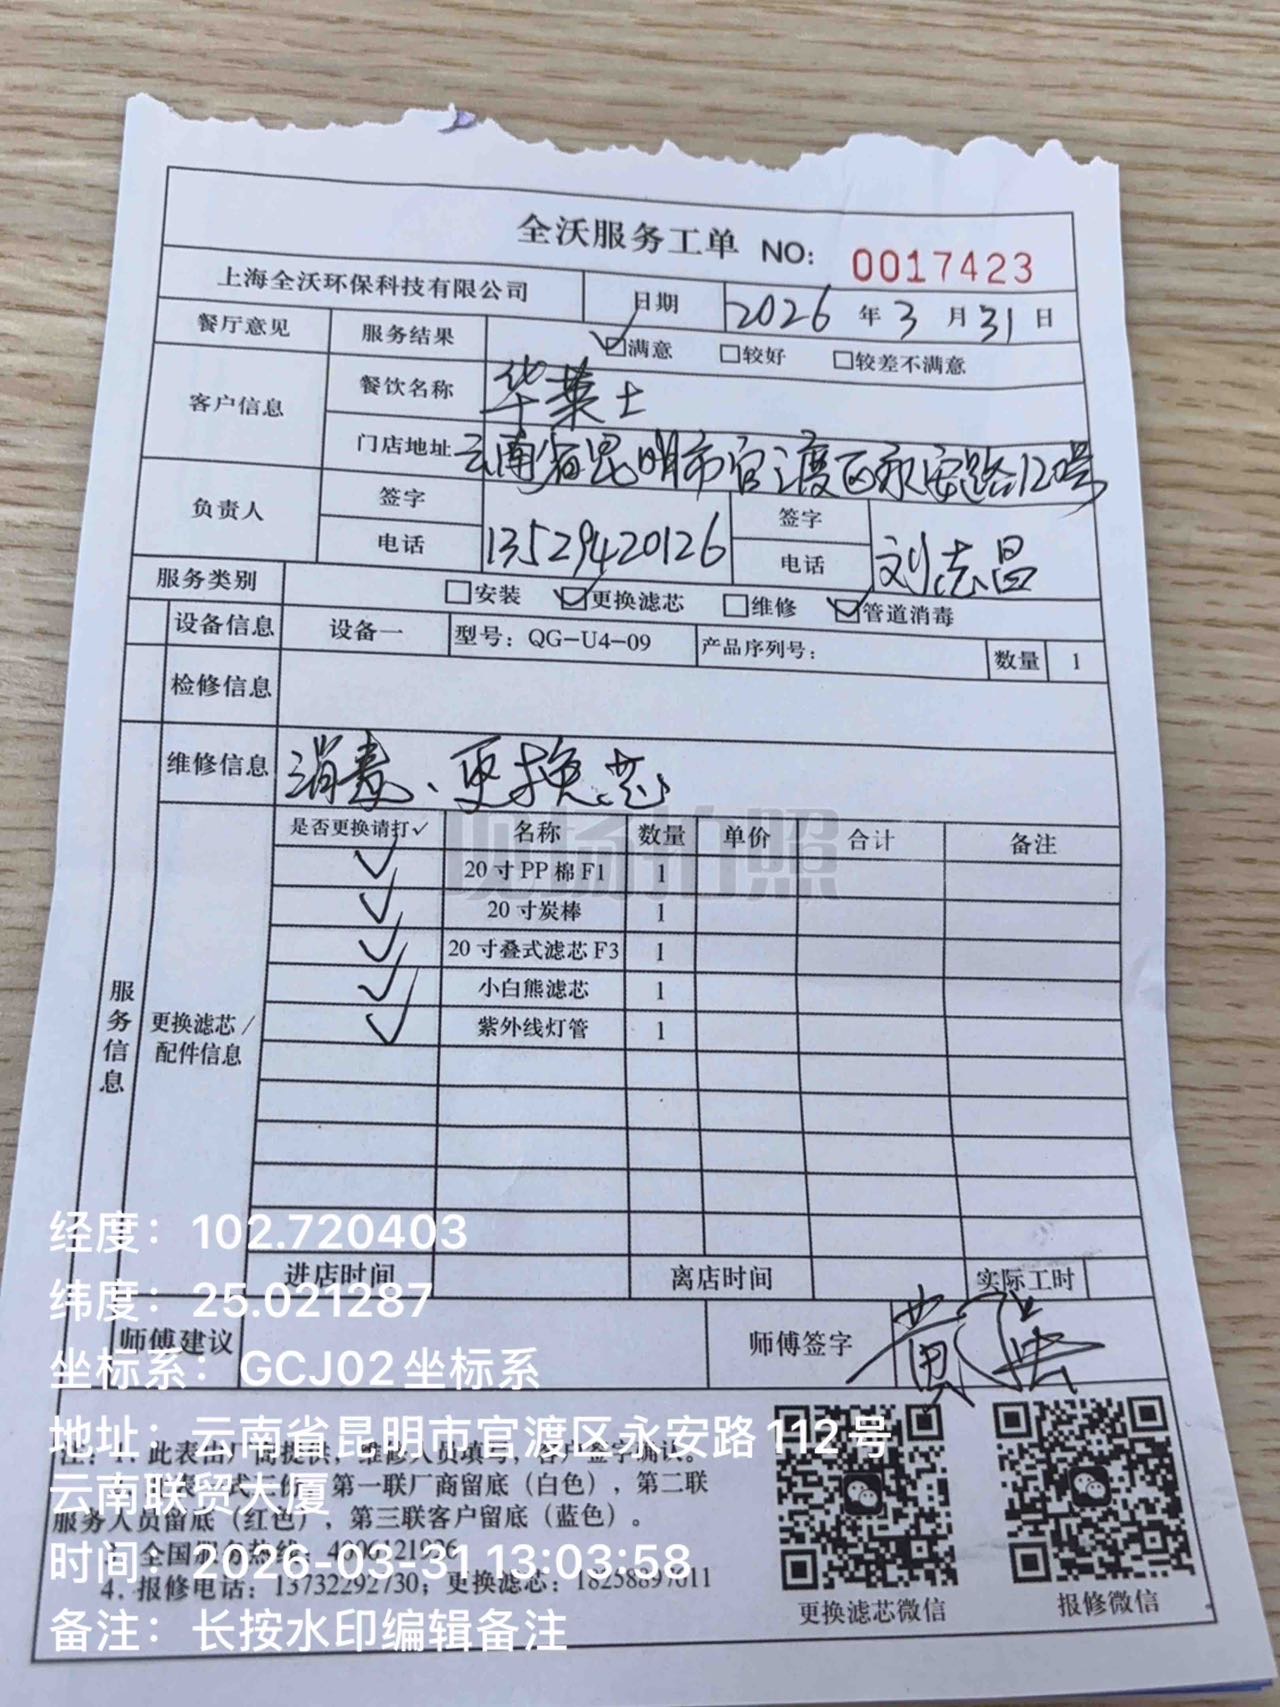 全沃服务工单 NO: 0017423
上海全沃环保科技有限公司 日期 2026 年 3 月 31 日
餐厅意见 服务结果 ☑满意 □较好 □较差不满意
客户信息 餐饮名称 华莱士
门店地址 云南省昆明市官渡区永安路120号
负责人 签字 签字
电话 13529420126 电话 刘志昌
服务类别 □安装 ☑更换滤芯 □维修 ☑管道消毒
设备信息 设备一 型号：QG-U4-09 产品序列号： 数量 1
检修信息
维修信息 消毒、更换芯
是否更换请打✓ 名称 数量 单价 合计 备注
✓ 20寸PP棉F1 1
✓ 20寸炭棒 1
✓ 20寸叠式滤芯F3 1
✓ 小白熊滤芯 1
✓ 紫外线灯管 1
服务信息
更换滤芯/
配件信息
现场拍照
进店时间 离店时间 实际工时
师傅建议 师傅签字
注：1. 此表由厂商提供，维修人员填写，客户签字确认。
第一联厂商留底（白色），第二联
服务人员留底（红色），第三联客户留底（蓝色）。
全国服务热线：
4. 报修电话：13732292730；更换滤芯：18258897611
更换滤芯微信 报修微信
经度：102.720403
纬度：25.021287
坐标系：GCJ02坐标系
地址：云南省昆明市官渡区永安路112号
云南联贸大厦
时间：2026-03-31 13:03:58
备注：长按水印编辑备注